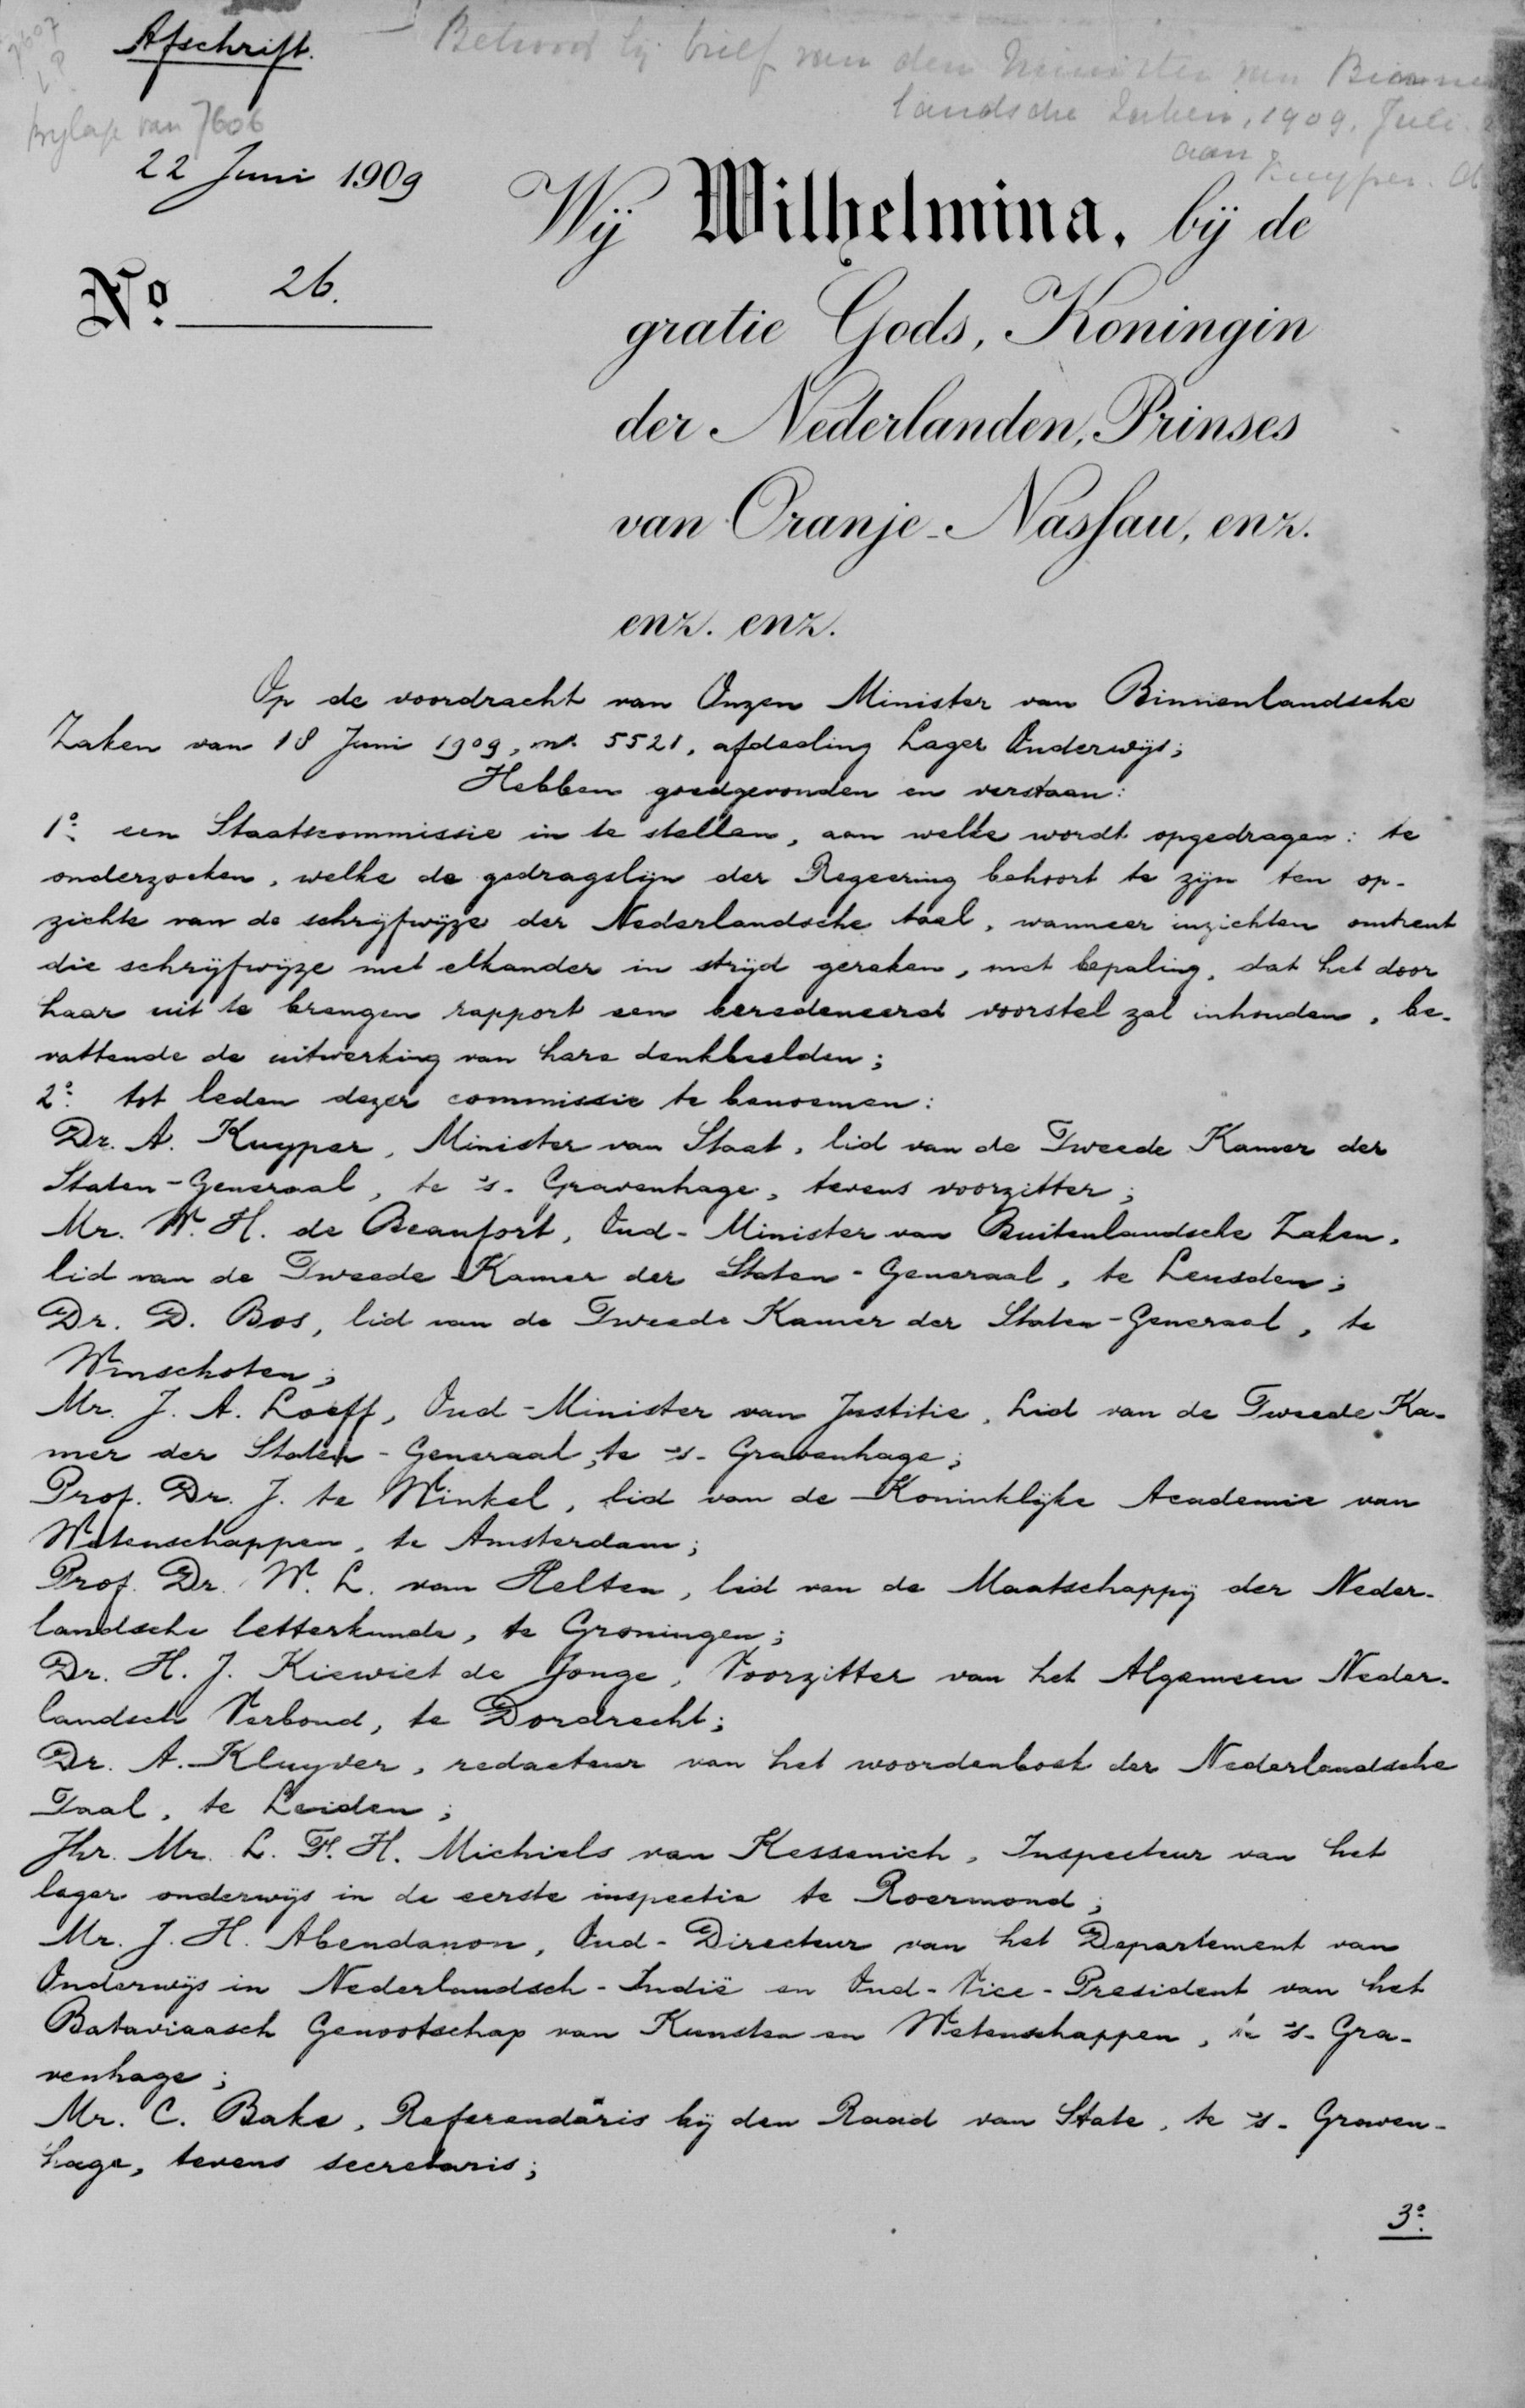 7607
Afschrift.
Behoort bij brief van den Minister van Binnen
landsche Zaken, 1909, Juli.
aan
Kuyper. A
Bylage van 7606
22 Juni 1909
Wij Wilhelmina, bij de
No. 26.
gratie Gods, Koningin
der Nederlanden, Prinses
van Oranje-Nassau, enz.
enz. enz.
Op de voordracht van Onzen Minister van Binnenlandsche
Zaken van 18 Juni 1909, no. 5521, afdeeling Lager Onderwijs;
Hebben goedgevonden en verstaan:
1o. een Staatscommissie in te stellen, aan welke wordt opgedragen: te
onderzoeken, welke de gedragslijn der Regeering behoort te zijn ten op-
zichte van de schrijfwijze der Nederlandsche taal, wanneer inzichten omtrent
die schrijfwijze met elkander in strijd geraken, met bepaling, dat het door
haar uit te brengen rapport een beredeneerd voorstel zal inhouden, be-
vattende de uitwerking van hare denkbeelden;
2o. tot leden dezer commissie te benoemen:
Dr. A. Kuyper, Minister van Staat, lid van de Tweede Kamer der
Staten-Generaal, te 's-Gravenhage, tevens voorzitter;
Mr. W. H. de Beaufort, Oud-Minister van Buitenlandsche Zaken,
lid van de Tweede Kamer der Staten-Generaal, te Leusden;
Dr. D. Bos, lid van de Tweede Kamer der Staten-Generaal, te
Winschoten;
Mr. J. A. Loeff, Oud-Minister van Justitie, Lid van de Tweede Ka-
mer der Staten-Generaal, te 's-Gravenhage;
Prof. Dr. J. te Winkel, lid van de Koninklijke Academie van
Wetenschappen, te Amsterdam;
Prof. Dr. W. L. van Helten, lid van de Maatschappij der Neder-
landsche letterkunde, te Groningen;
Dr. H. J. Kiewiet de Jonge, Voorzitter van het Algemeen Neder-
landsch Verbond, te Dordrecht;
Dr. A. Kluyver, redacteur van het woordenboek der Nederlandsche
Taal, te Leiden;
Jhr. Mr. L. F. H. Michiels van Kessenich, Inspecteur van het
lager onderwijs in de eerste inspectie te Roermond;
Mr. J. H. Abendanon, Oud-Directeur van het Departement van
Onderwijs in Nederlandsch-Indië en Oud-Vice-President van het
Bataviaasch Genootschap van Kunsten en Wetenschappen, te 's-Gra-
venhage;
Mr. C. Bake, Referendaris bij den Raad van State, te 's-Graven-
hage, tevens secretaris;
3o.